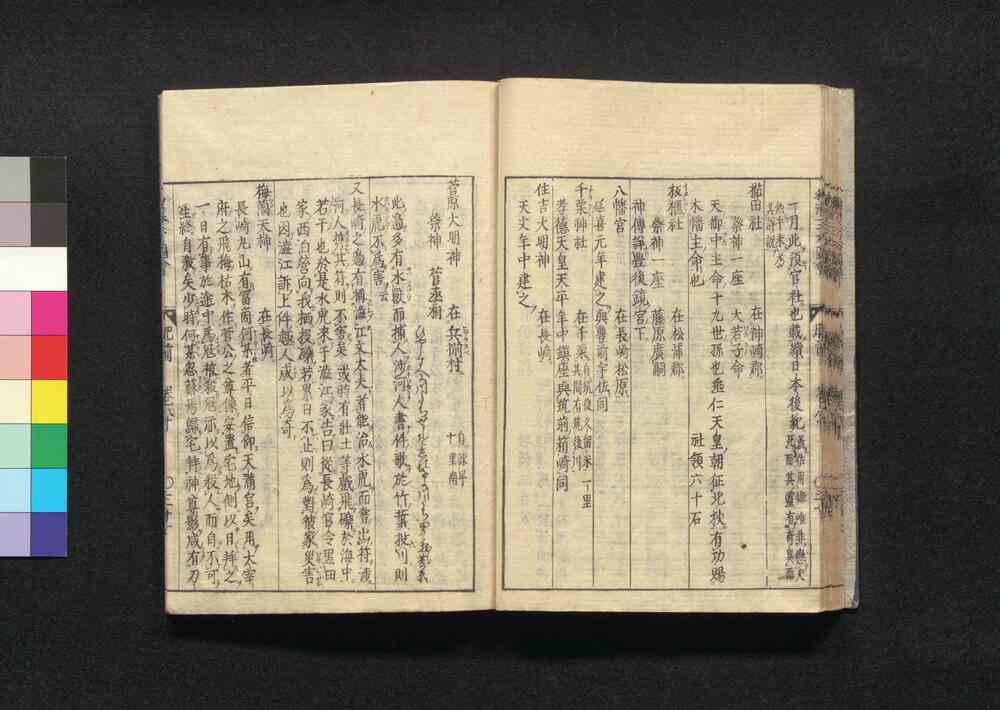 一月此預官社也載續日本後紀
櫛田社　在神崎郡　社領六十石
祭神一座　大若子命
天御中主命十九世孫也垂仁天皇朝征北狄有功賜
大幡主命也
板櫃社　在松浦郡
祭神一座　藤原廣嗣
神傳詳豐後鏡宮下
八幡宮　在長崎松原
延喜元年建之與豐前宇佐同
千栗神社　在千栗
孝德天皇天平年中鎮座與筑前箱崎同
住吉大明神　在長崎
天文年中建之
菅原大明神　在兵揃村　自諫早十里南
祭神　菅丞相
此邊多有水獸而捕人渉河人書件歌於竹葉投川則
水虎不爲害云
又長崎之邊有稱澁江文太夫者能治水虎而嘗出符渡
河人携其符則不害矣或時有壯士等戲飛礫於海中
若干也於是水鬼來于澁江家告曰從長崎官令黒田
家西泊營向我栖投礫若累日不止則爲對彼家災害
也因澁江訴上件趣人咸以爲奇
梅園天神　在長崎
長崎丸山有富商何某者平日信仰天滿宮矣用太宰
府之飛梅枯木作菅公之尊像安置宅地側以日拜之
一日有事於途中